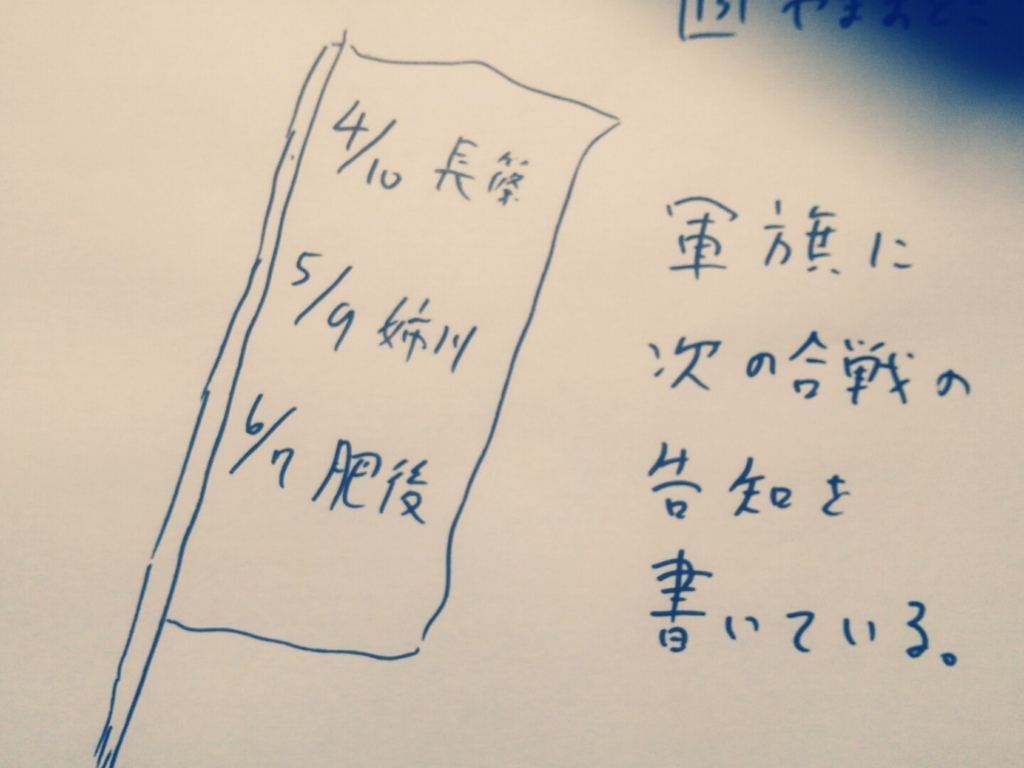 4/10 長篠
5/9 姉川
6/7 肥後
軍旗に
次の合戦の
告知を
書いている。